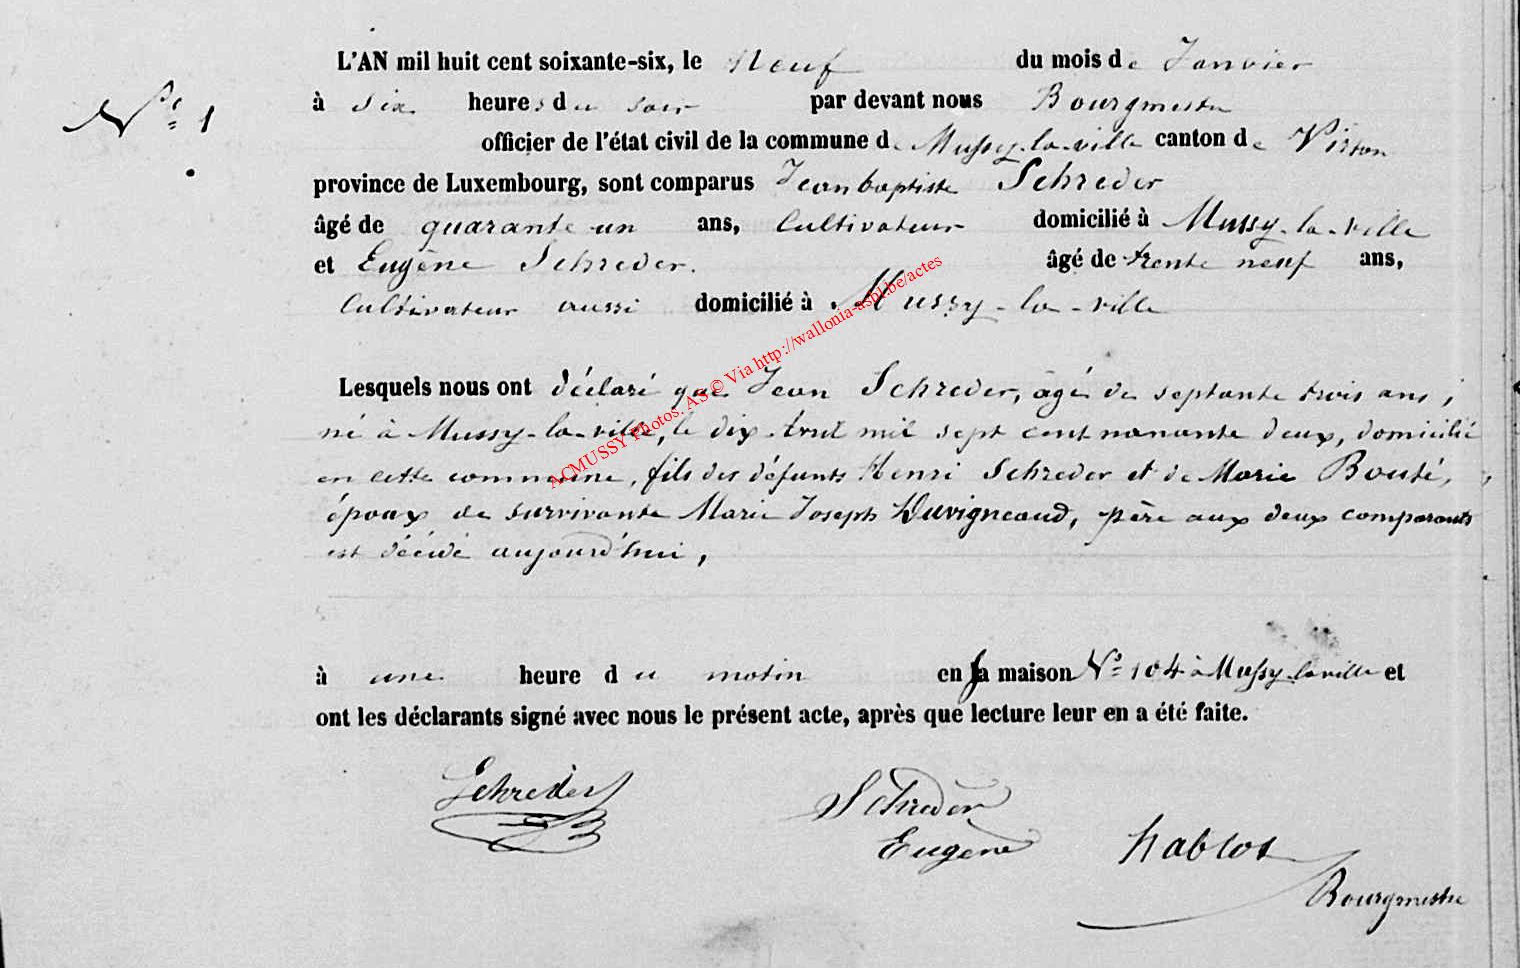 L'AN mil huit cent soixante-six, le Neuf du mois de Janvier
N° 1
à six heures du soir par devant nous Bourgmestre
officier de l'état civil de la commune de Mussy-la-ville canton de Virton
province de Luxembourg, sont comparus Jean baptiste Schreder
âgé de quarante-un ans, Cultivateur domicilié à Mussy-la-ville
et Eugène Schreder. âgé de trente neuf ans,
Cultivateur aussi domicilié à Mussy-la-ville
Lesquels nous ont déclaré que Jean Schreder, âgé de septante trois ans,
né à Mussy-la-ville, le dix Aout mil sept cent nonante deux, domicilié
en cette commune, fils des défunts Henri Schreder et de Marie Bouté,
époux de survivante Marie Joseph Duvigneaud, père aux deux comparants
est décédé aujourd'hui,
à une heure du matin en sa maison N° 104 à Mussy-la ville et
ont les déclarants signé avec nous le présent acte, après que lecture leur en a été faite.
Schreder JB
Schreder
Eugène
hablot
Bourgmestre
ACMUSSY Photos. AS © Via http://wallonia-asbl.be/actes